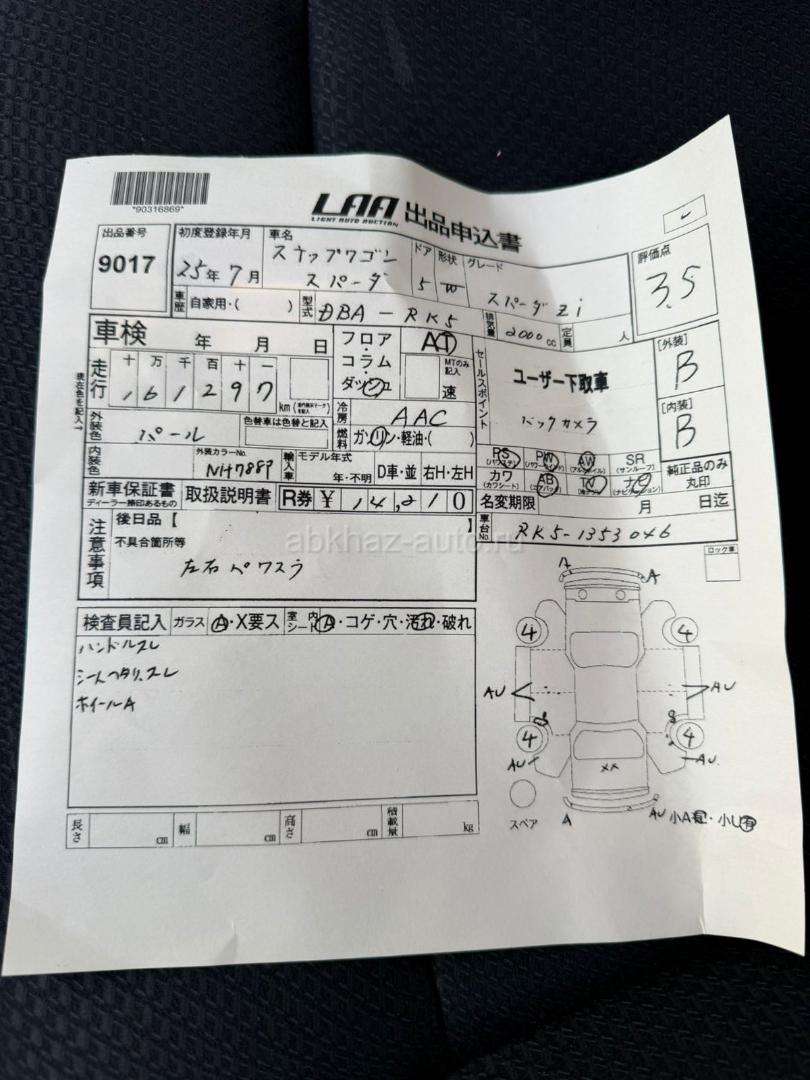 *90316869*
LAA 出品申込書
LIGHT AUTO AUCTION
出品番号
9017
初度登録年月
25年7月
車名
ステップワゴン
スパーダ
ドア
5
形状
W
グレード
スパーダZi
評価点
3.5
車歴 自家用・( )
型式 DBA-RK5
排気量 2000cc
定員 人
車検 年 月 日
フロア・コラム・ダッシュ
AT
MTのみ記入
速
セールスポイント
ユーザー下取車
バックカメラ
[外装]
B
[内装]
B
現在色を記入→
走行 十 万 千 百 十 一
161297
km
冷房 AAC
燃料 ガソリン・軽油・( )
外装色 パール
色替車は色替と記入
内装色
外装カラーNo.
NH788P
輸入車 モデル年式
年・不明
D車・並 右H・左H
PS PW AW SR
(パワステ) (パワーウィンド) (アルミホイル) (サンルーフ)
カワ AB TV ナビ
(カワシート) (エアバック) (ナビゲーション)
純正品のみ丸印
新車保証書
ディーラー捺印あるもの
取扱説明書
R券 ¥ 14,210
名変期限 月 日迄
車台No. RK5-1353046
注意事項
後日品【 】
不具合箇所等
左右パワスラ
abkhaz-auto.ru
ロック車
検査員記入 ガラス A・X要ス
室内シート A・コゲ・穴・汚れ・破れ
ハンドルスレ
シートヘタリ、スレ
ホイールA
A A
4 4
AU AU
4 4
AU AU
XX
スペア
A AU 小A有・小U有
長さ cm
幅 cm
高さ cm
積載量 kg